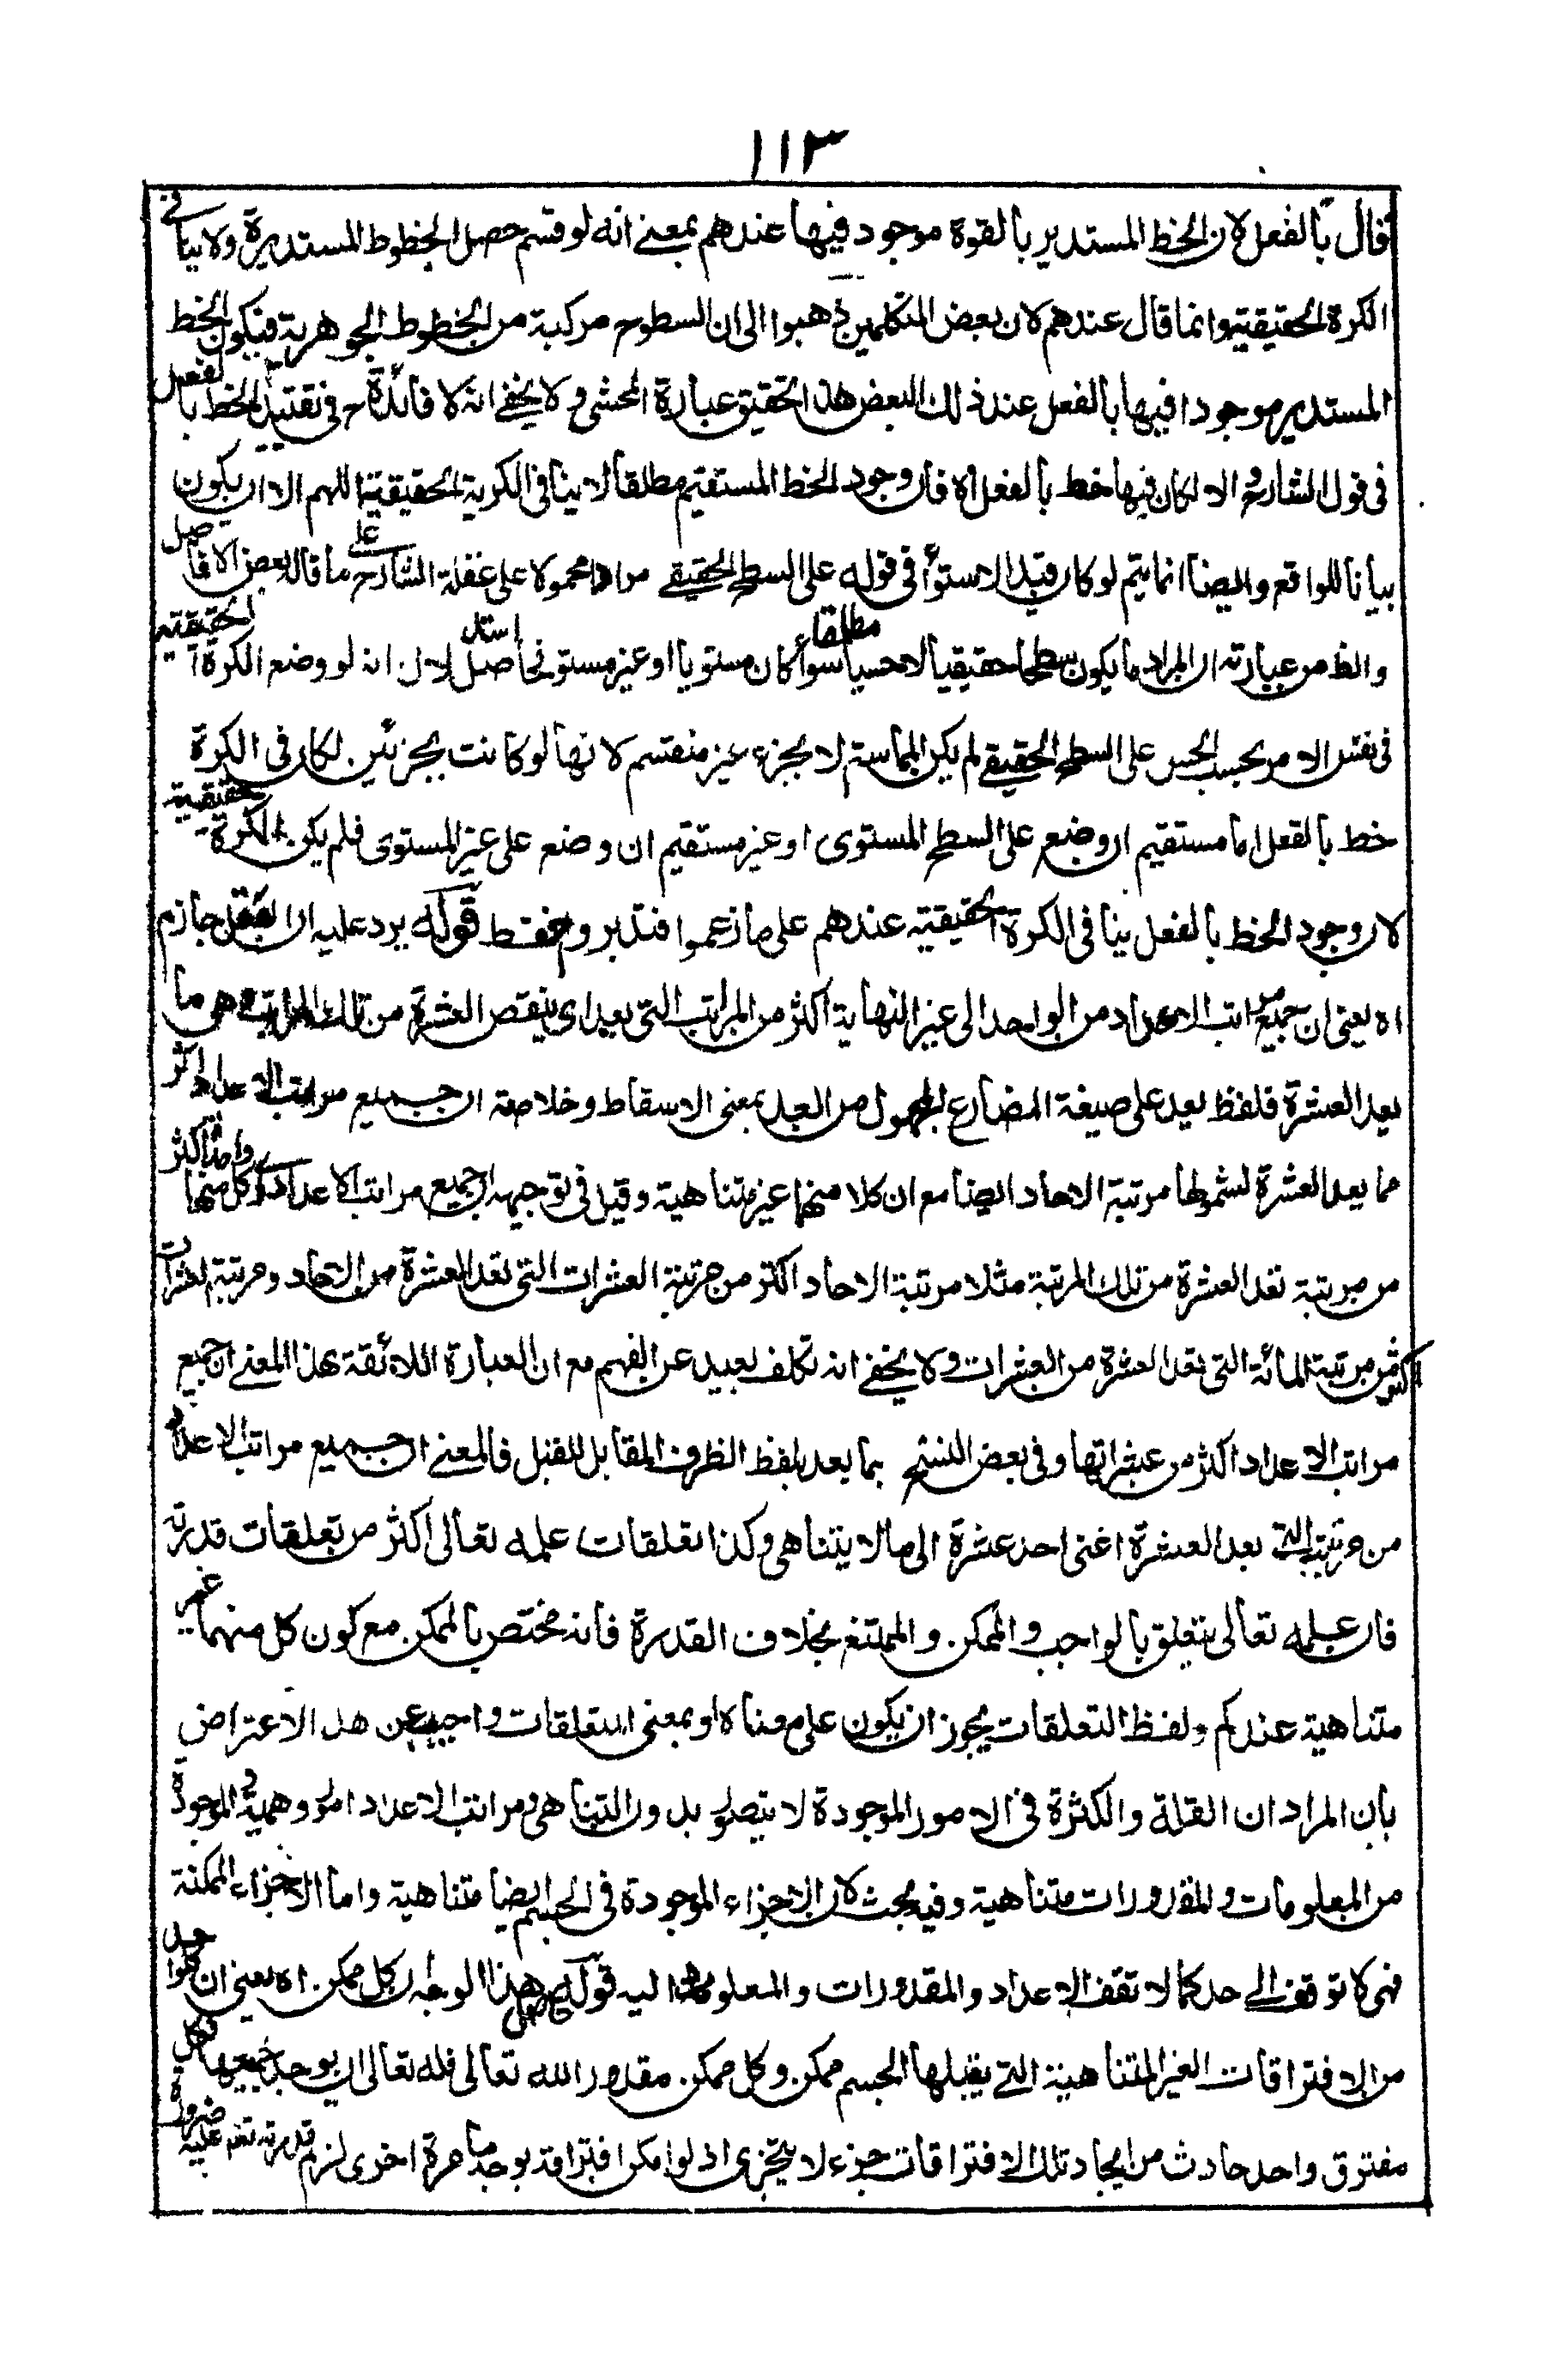 ١١٣
قال بالفعل لان الخط المستدير بالقوة موجود فيها عندهم بمعنے انه لو قسم حصل الخطوط المستديرة ولا ينافى
الكرة الحقيقية وانما قال عندهم لان بعض المتكلمين ذهبوا الى ان السطوح مركبة من الخطوط الجوهرية فيكون الخط
المستدير موجودا فيها بالفعل عند ذلك البعض هذا تحقيق عبارة المحشى ولا يخفے انه لا فائدة ح فى تقييد الخط بالفعل
فى قول الشارح والا لكان فيها خط بالفعل اه فان وجود الخط المستقيم مطلقا لا ينافى الكرية الحقيقية اللهم الا ان يكون
بيانا للواقع وايضا انما يتم لو كان قيد الاستواء فى قوله على السطح الحقيقے مرادا محمولا على غفلة الشارح على ما قاله بعض الافاضل
والظ من عبارته ان المراد ما يكون سطحا حقيقيا لا حسيا سواء كان مستويا او غير مستو فحاصل استدلال انه لو وضع الكرة الحقيقية
فى نفس الامر بحسب الحس على السطح الحقيقے لم يكن المماسة الا بجزء غير منقسم لانها لو كانت بجزئين لكان فى الكرة
خط بالفعل اما مستقيم ان وضع على السطح المستوى او غير مستقيم ان وضع على غير المستوى فلم يكن الكرة حقيقية
لان وجود الخط بالفعل ينافى الكرة الحقيقية عندهم على ما زعموا فتدبر واحفظ قوله يرد عليه ان العقل جازم
اه يعنى ان جميع مراتب الاعداد من الواحد الى غير النهاية اكثر من المراتب التى يعد اى ينقص العشرة من تلك المراتب وهى ما
يعد العشرة فلفظ يعد على صيغة المضارع المجهول من العد بمعنى الاسقاط وخلاصته ان جميع مراتب الاعداد اكثر
مما يعد العشرة لشمولها مرتبة الاحاد ايضا مع ان كلا منهما غير متناهية وقيل فى توجيهه ان جميع مراتب الاعداد كل منها اكثر
من مرتبة تعد العشرة من تلك المرتبة مثلا مرتبة الاحاد اكثر من مرتبة العشرات التى تعد العشرة من الاحاد ومرتبة العشرات
اكثر من مرتبة المائة التى تعد العشرة من العشرات ولا يخفے انه تكلف بعيد عن الفهم مع ان العبارة اللائقة بهذا المعنے ان جميع
مراتب الاعداد اكثر من عشراتها وفى بعض النسخ بما بعد بلفظ الظرف المقابل للقبل فالمعنے ان جميع مراتب الاعداد
من مرتبة التى بعد العشرة اعنى احد عشرة الى ما لا يتناهى وكذا تعلقات علمه تعالى اكثر من تعلقات قدرته
فان علمه تعالى يتعلق بالواجب والممكن والممتنع بخلاف القدرة فانه مختص بالممكن مع كون كل منهما غير
متناهية عندكم ولفظ التعلقات يجوز ان يكون على معناه او بمعنى المتعلقات واجيب عن هذا الاعتراض
بان المراد ان القلة والكثرة فى الامور الموجودة لا يتصور بدون التناهى ومراتب الاعداد امور وهمية والموجودة
من المعلومات والمقدورات متناهية وفيه بحث لان الاجزاء الموجودة فى الجسم ايضا متناهية واما الاجزاء الممكنة
فهى لا توقف الى حد كما لا تقف الاعداد والمقدورات والمعلومات اليه قوله هذا الوجه ان كل ممكن اه يعنى ان كلوا حد
من الافتراقات الغير المتناهية التے يقبلها الجسم ممكن وكل ممكن مقدور الله تعالى فله تعالى ان يوجد جميعها فكل
مفترق واحد حادث من ايجاد تلك الافتراقات جزء لا يتجزى اذ لو امكن افتراقه يوجد ما مرة اخرى لزم قدرته تعم عليه ضرورة